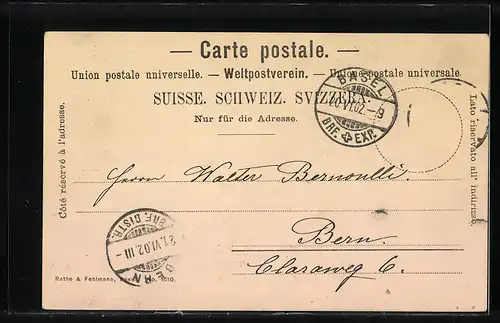 — Carte postale. —
Union postale universelle. — Weltpostverein. — Unione postale universale
SUISSE. SCHWEIZ. SVIZZERA.
Nur für die Adresse.
Côté réservé à l'adresse.
Lato riservato all' indirizzo.
BASEL
20.VI.02.–9
BRF. EXP.
Herrn Walter Bernoulli.
Bern.
Claraweg 6.
BERN
21.VI.02.III–
BRF. DISTR.
Rathe & Fehlmann, No. 1010.